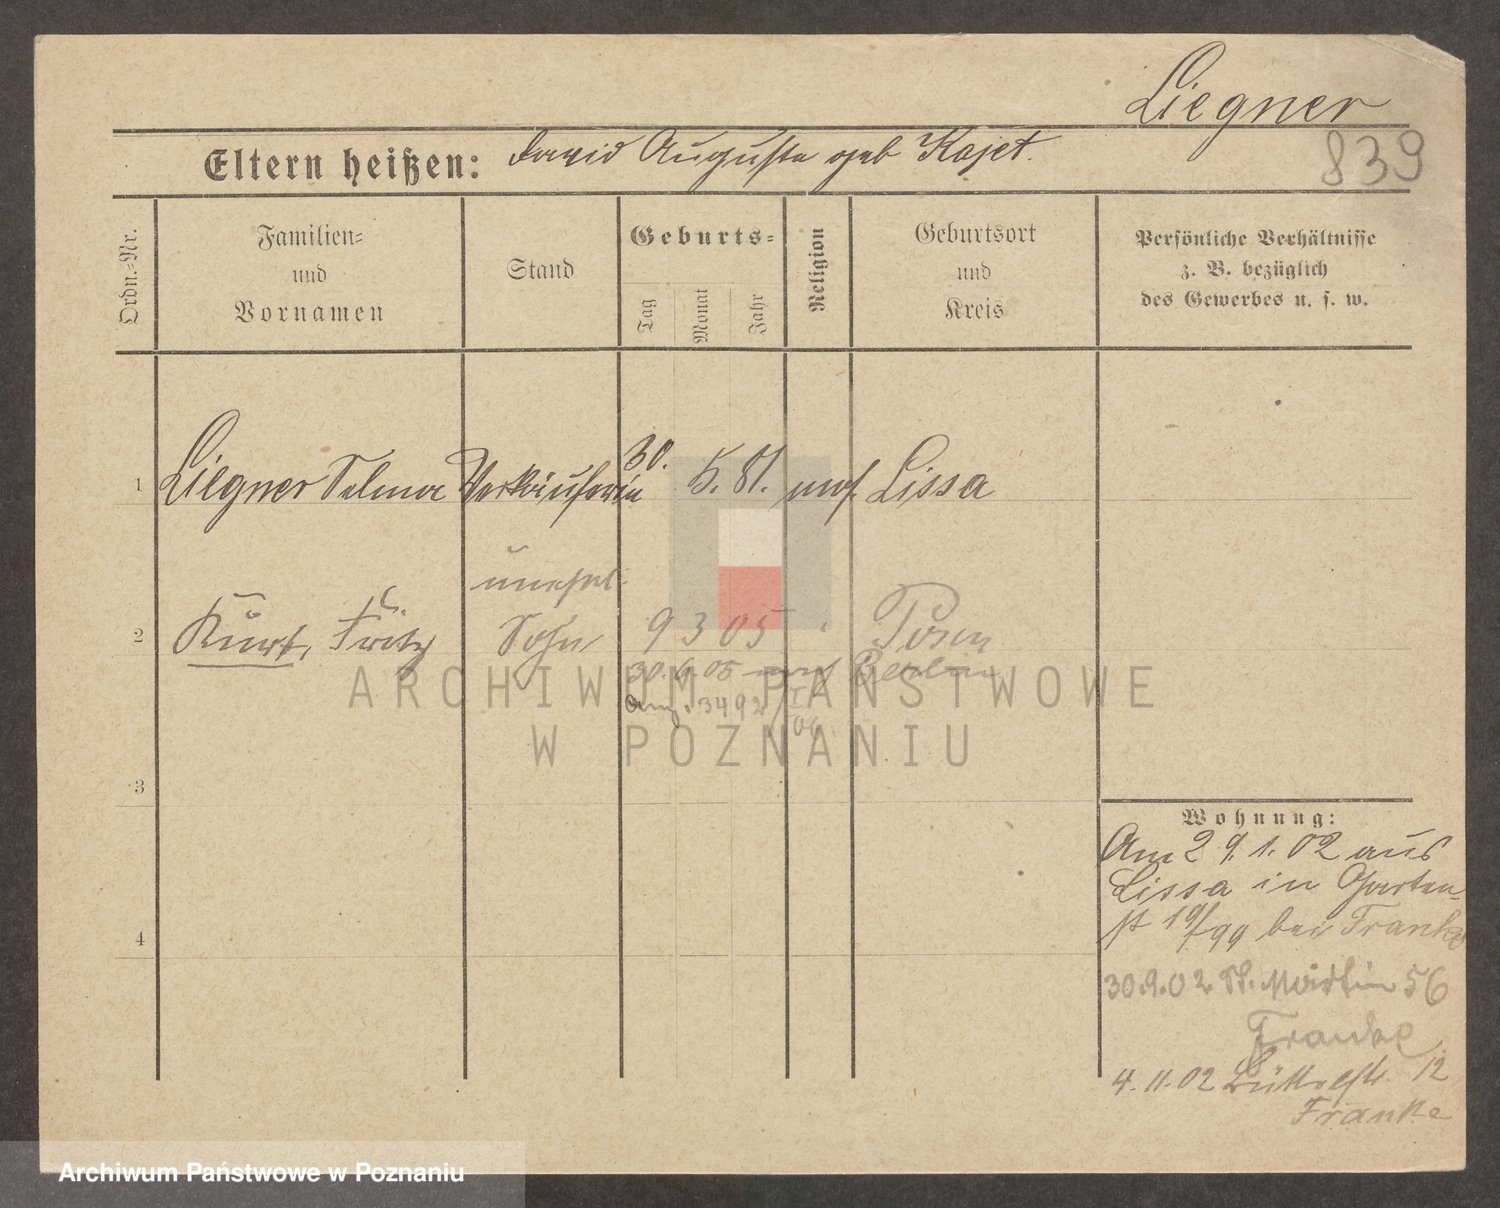 Liegner
839
Eltern heißen: David Auguste geb Kajet.
Ordn.-Nr.
Familien-
und
Vornamen
Stand
Geburts-
Tag
Monat
Jahr
Religion
Geburtsort
und
Kreis
Persönliche Verhältnisse
z. B. bezüglich
des Gewerbes u. s. w.
1 Liegner Selma Verkäuferin 30. 5. 81. mos. Lissa
unehel.
2 Kurt, Fritz Sohn 9 3 05 Posen
30. 6. 05 nach Berlin
3492
3
4
Wohnung:
Am 29.1.02 aus
Lissa in Garten-
st 19/99 bei Franke
30.9.02 St. Martin 56
Franke
4.11.02 12
Franke
ARCHIWUM PAŃSTWOWE
W POZNANIU
Archiwum Państwowe w Poznaniu